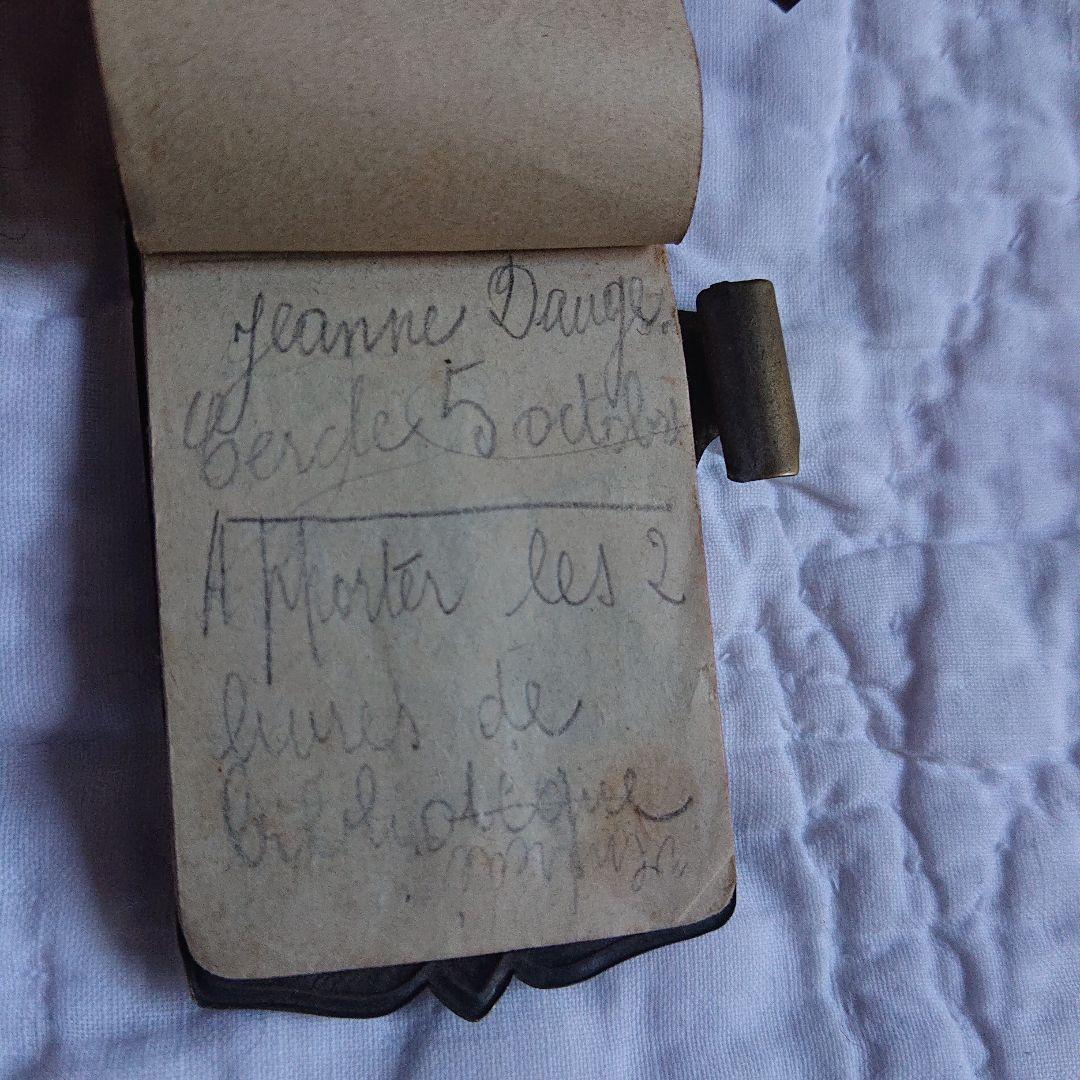 Jeanne Dauge.
Cercle 5 octobre
Apporter les 2
livres de
bibliotique